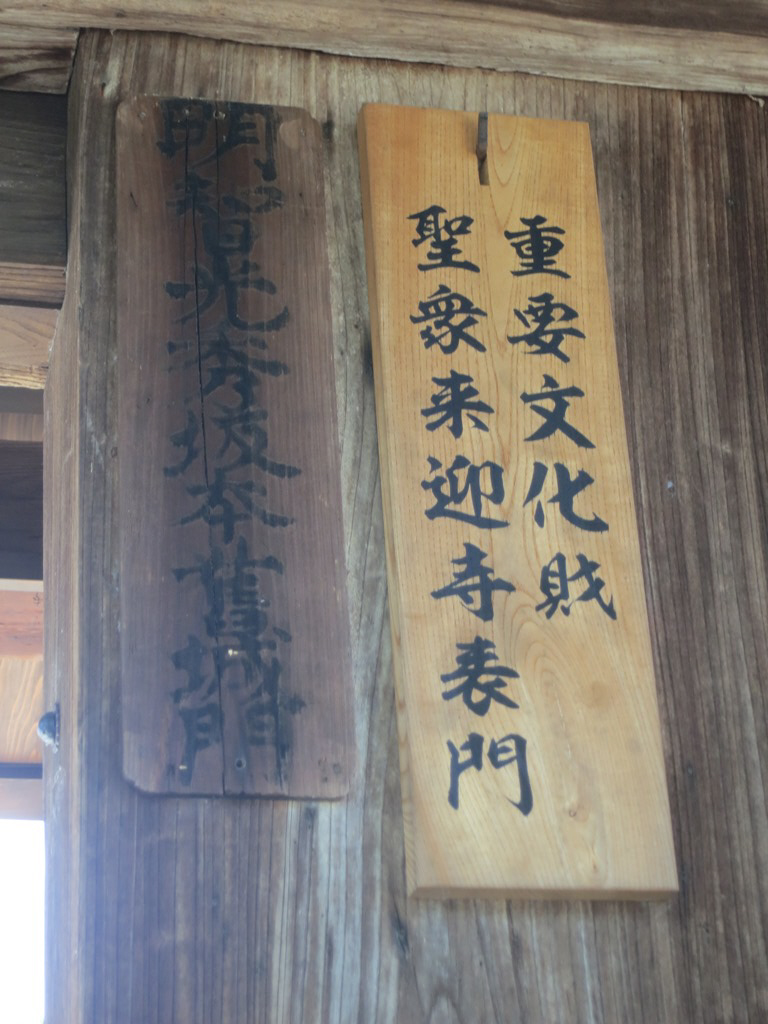 重要文化財
聖衆来迎寺表門
明智光秀坂本舊城門